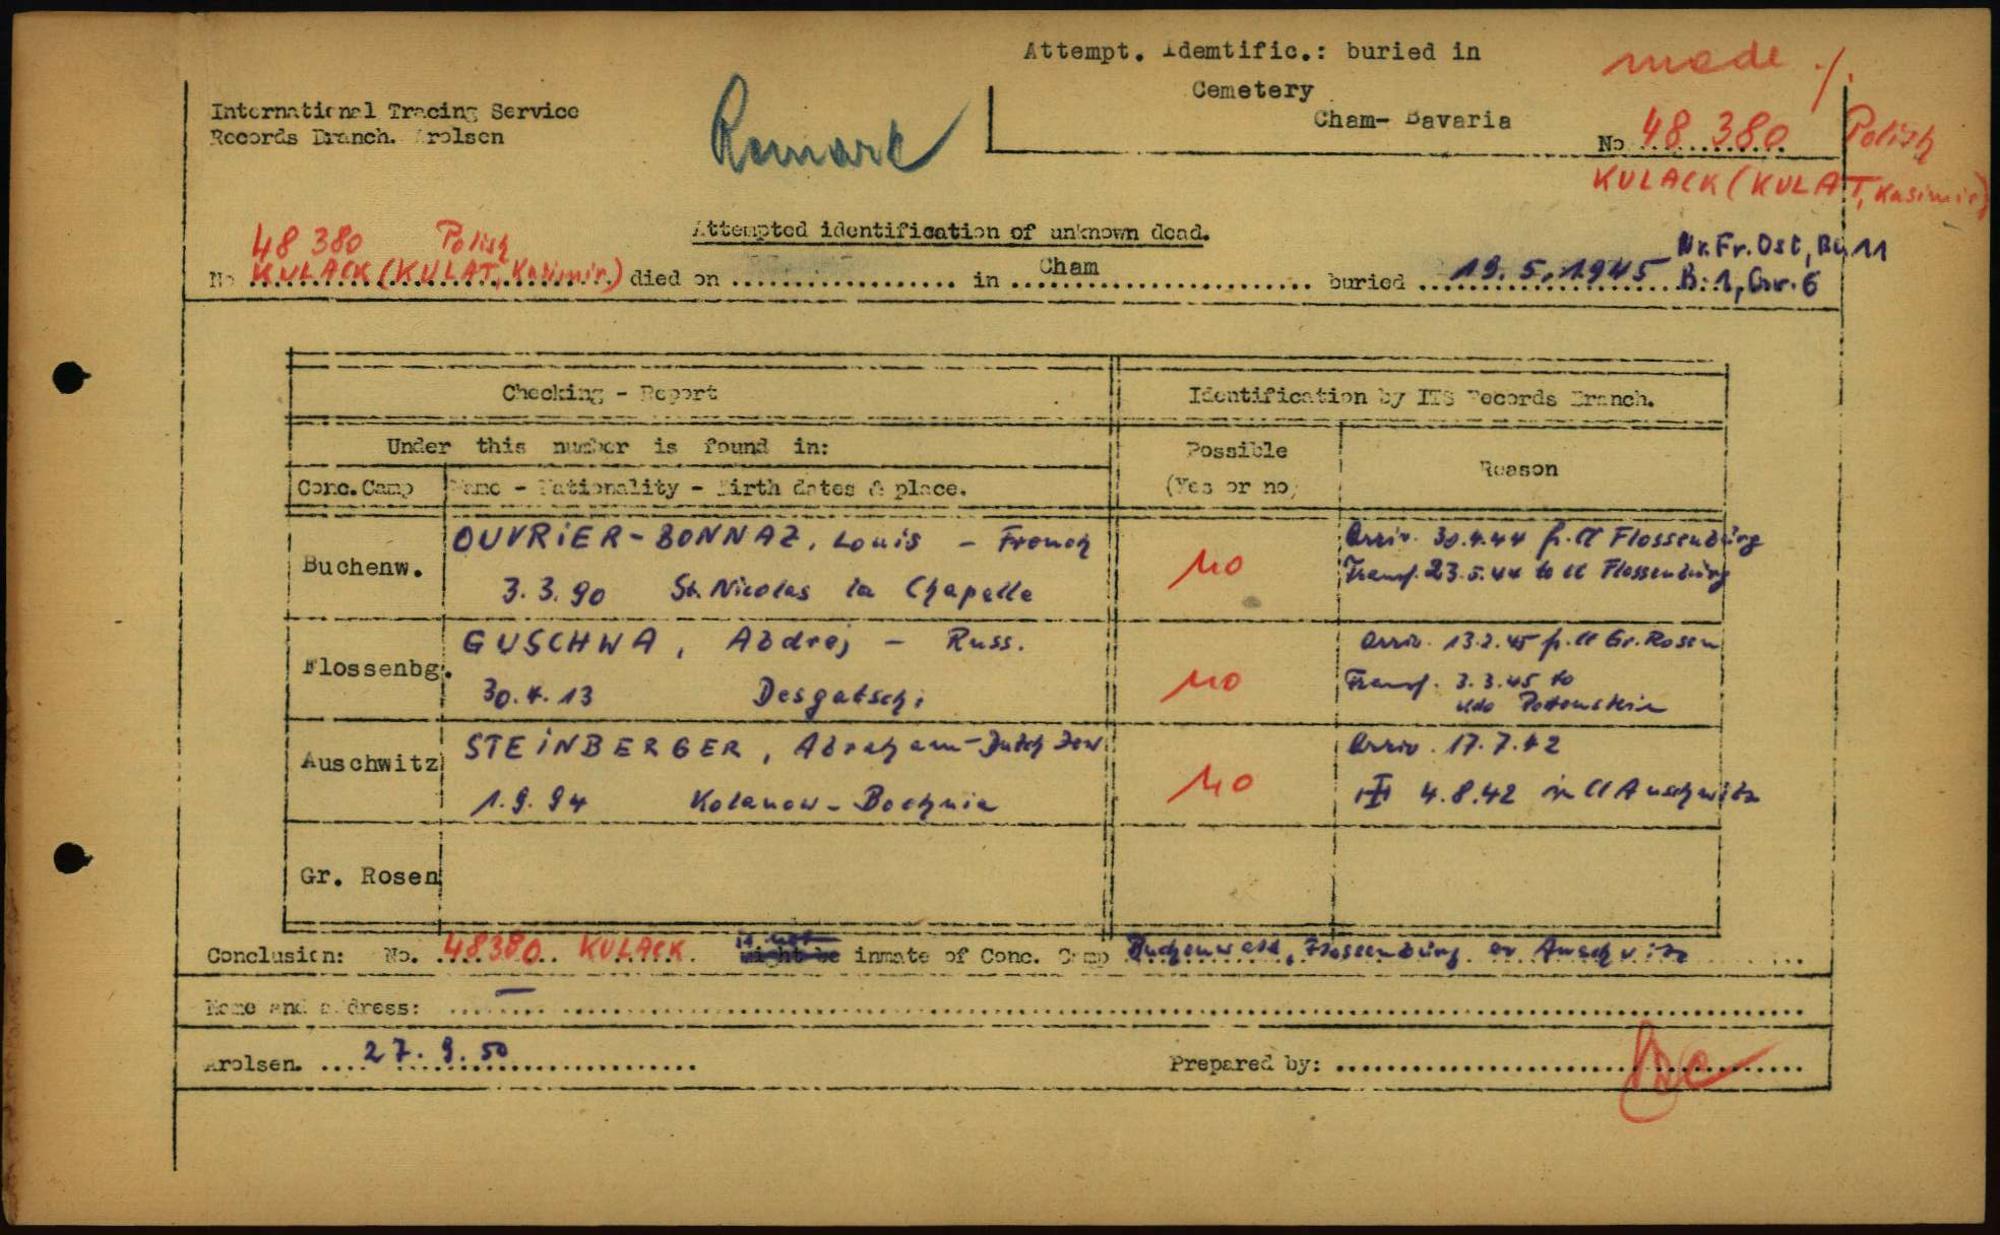 Attempt. Idemtific.: buried in
Cemetery
Cham- Bavaria
made ./.
International Tracing Service
Records Branch. Arolsen
Remark
No 48 380 Polish
KULACK (KULAT, Kasimir)
Attempted identification of unknown dead.
48 380 Polish
No KULACK (KULAT, Kasimir.) died on .................. in Cham buried 19. 5. 1945 Nr. Fr. Ost, Bu, 11
B: 1, Gr. 6
Checking - Report
Identification by ITS Records Branch.
Under this number is found in:
Possible
(Yes or no)
Reason
Conc. Camp
Name - Nationality - Birth dates & place.
Buchenw.
OUVRIER-BONNAZ, Louis - French
3. 3. 90 St. Nicolas la Chapelle
no
Arriv. 30.4.44 fr. Cl Flossenbürg
Transf. 23.5.44 to Cl Flossenbürg
Flossenbg.
GUSCHWA, Abdrej - Russ.
30. 4. 13 Desgatschi
no
Arriv. 13.2.45 fr. Cl Gr. Rosen
Transf. 3.3.45 to
Kdo Pottenstein
Auschwitz
STEINBERGER, Abraham - Dutch Jew
1. 9. 94 Kolanow - Bochnia
no
Arriv. 17.7.42
4.8.42 in Cl Auschwitz
Gr. Rosen
Conclusion: No. 48380 KULACK. is not might be inmate of Conc. Camp Buchenwald, Flossenbürg or Auschwitz
Name and address: —
Arolsen. 27. 9. 50
Prepared by: